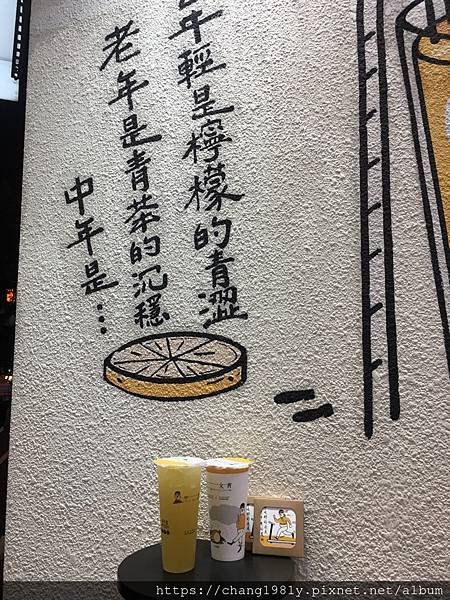 年輕是檸檬的青澀
老年是青茶的沉穩
中年是...
文青
https://chang1981y.pixnet.net/album